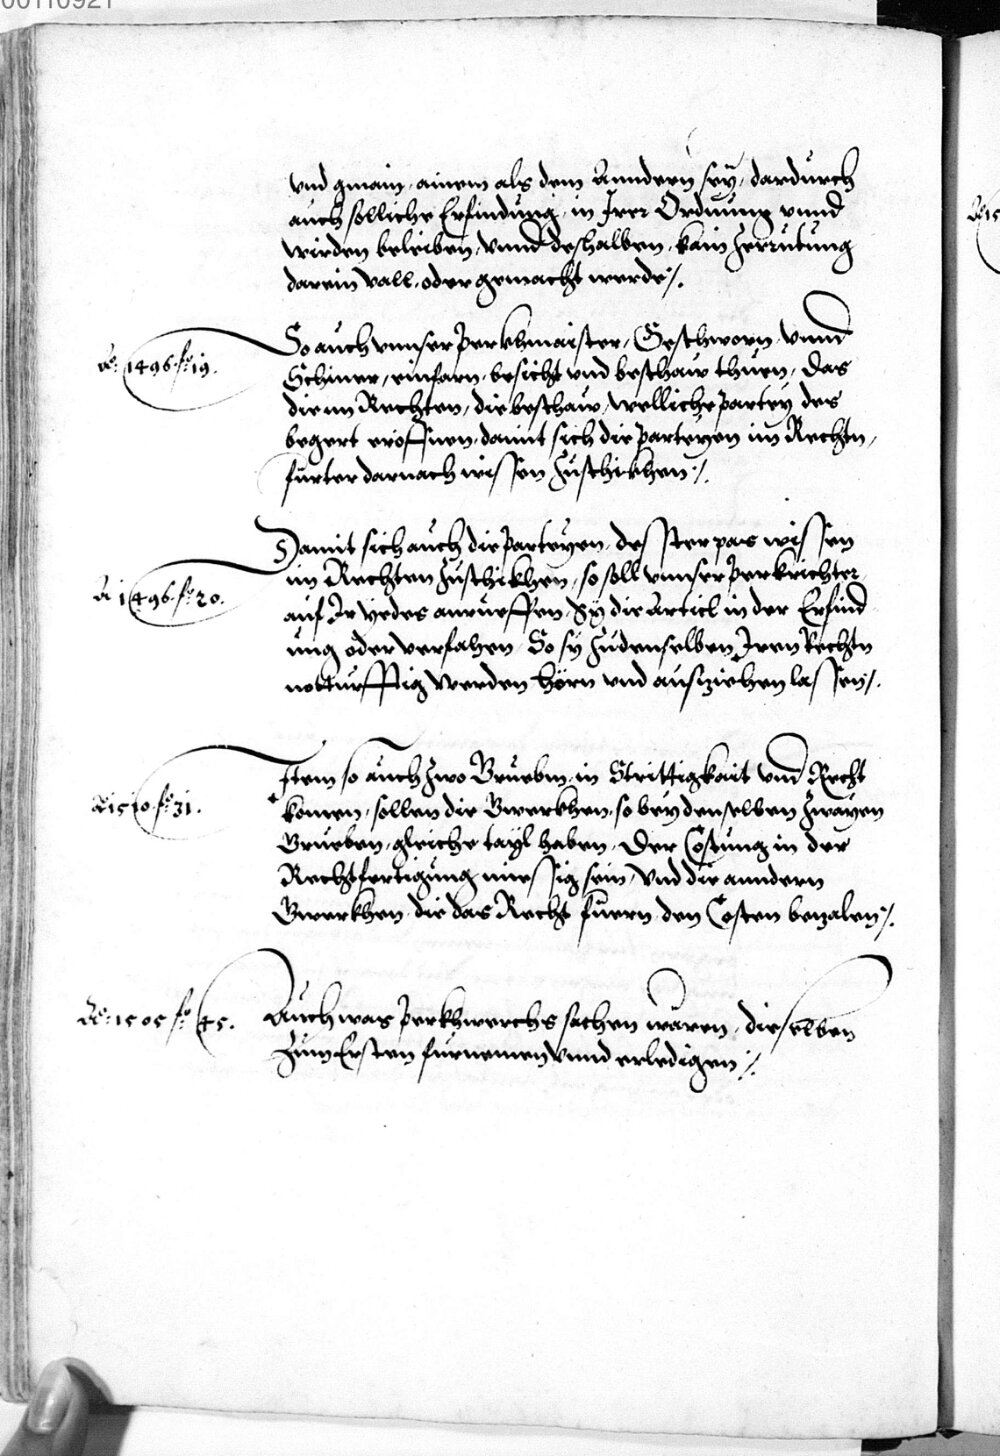 00110921
vnd gmain, ainem als dem Anndern seÿ, dardurch
auch solliche Erfindung, in Irer Ordnung vnnd
wirden beleiben, vnnd deshalben, kain Zerrutung
darein vall, oder gemacht werde /.
Ao: 1496. fo: 19.
So auch vnnser Perkhmaister, Geschworn, vnnd
Schiner, einfarn, besicht vnd beschaw thuen, Das
die im Rechten, die beschaw, welliche Partey des
begert eröffnen, damit sich die Parteyen im Rechtn,
furter darnach wissen Zuschikhen /.
A 1496. fo: 20.
Damit sich auch die Parteyen, desster pas wissen
im Rechten Zuschikhen, so soll vnnser Perkrichter
auf Ir yedes anrueffen, Sÿ die Articl in der Erfind
ung oder verfahen, So sÿ Zu denselben Iren Rechtn
notturfftig werden hörn vnd ausziehen lassen /.
A 1510. fo: 31.
Item so auch Zwo Gruebm, in Strittigkait vnd Recht
komen, sollen die Gwerkhen, so bey denselben Zwayen
Grueben, gleiche tayl haben, Der Costung in der
Rechtfertigung muessig sein, Vnd die anndern
Gwerkhen, die das Recht fuern, den Costen bezalen /.
Ao: 1505 fo: 45.
Auch was Perkhwerchs sachen wären, dieselben
Zum Ersten furnemen vnnd erledigen /.